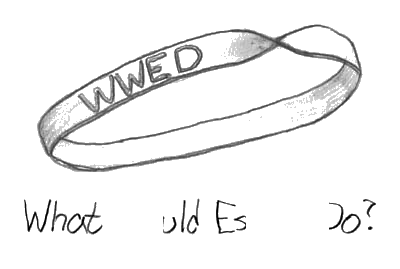 WWED
What uld Es Do?